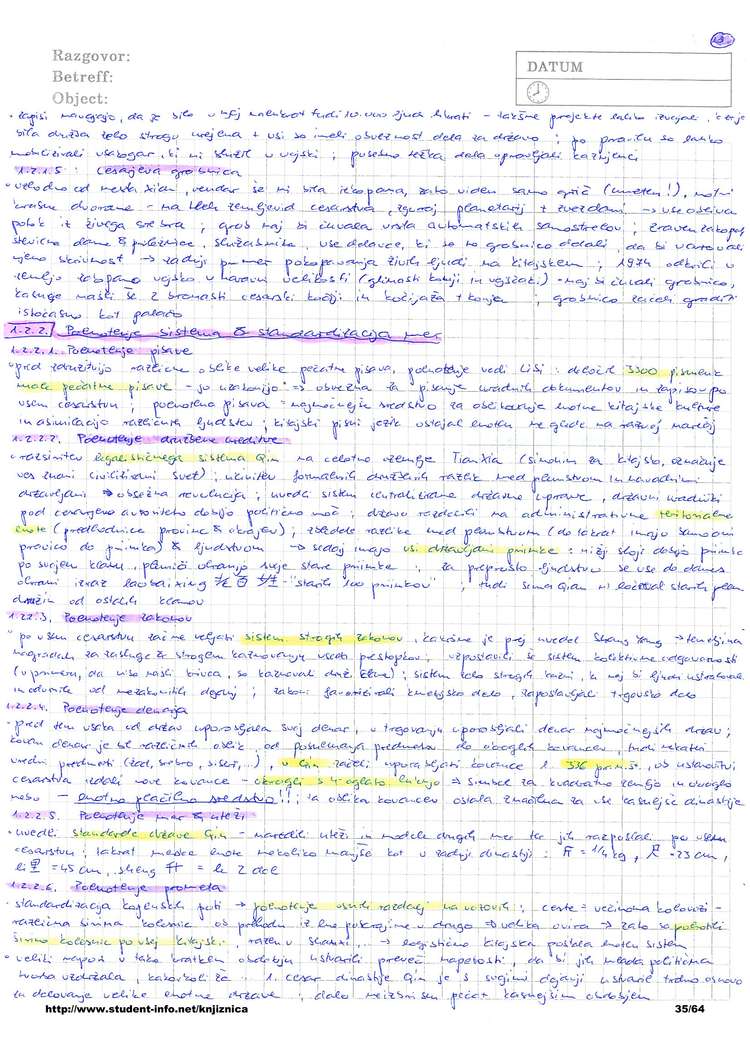 13
Razgovor:
Betreff:
Object:
DATUM
bila družba zelo strogo urejena + vsi so imeli obveznost dela za državo ; po pravilu so lahko
mobilizirali vsakogar, ki ni služil v vojski ; posebno težka dela opravljali kaznjenci
1.2.1.5. Cesarjeva grobnica
krasne dvorane - na tleh zemljevid cesarstva, zgoraj planetarij + zvezdami
potok iz živega srebra ; grob naj bi čuvala vrsta avtomatskih samostrelov ; zraven zakopal
številne dame & priležnice, služabnike, vse delavce, ki so to grobnico delali, da bi varovali
njeno skrivnost → zadnji primer pokopavanja živih ljudi na Kitajskem ; 1974 odkrili v
zemljo zakopano vojsko v naravni velikosti (glinasti konji in vojščaki) - naj bi čuvali grobnico,
kasneje našli še 2 bronasti cesarski kočiji in kočijaža + konje ; grobnico začeli graditi
istočasno kot palačo
1.2.2. Poenotenje sistema & standardizacija mer
1.2.2.1. Poenotenje pisave
pred združitvijo različne oblike velike pečatne pisave, poenotenje vodi Li Si : določil 3300 pismenk
male pečatne pisave - jo uzakonijo → obvezna za pisanje uradnih dokumentov in zapisov po
vsem cesarstvu ; poenotena pisava = najmočnejše sredstvo za oblikovanje enotne kitajske kulture
in asimilacijo različnih ljudstev ; kitajski pisni jezik ostajal enoten ne glede na razvoj narečij
1.2.2.2. Poenotenje družbene ureditve
razširitev legalističnega sistema Qin na celotno ozemlje Tianxia (sinonim za Kitajsko, označuje
ves znani civilizirani svet) ; ukinitev formalnih družbenih razlik med plemstvom in navadnimi
državljani → obsežna revolucija ; uvedli sistem centralizirane državne uprave, državni uradniki
pod cesarjevo avtoriteto dobijo politično moč ; državo razdelili na administrativne teritorialne
enote (predhodnice provinc & okrajev) ; zabrisale razlike med plemstvom (do takrat imajo samo oni
pravico do priimka) & ljudstvom → sedaj imajo vsi državljani priimke : nižji sloji dobijo priimke
po svojem klanu, plemiči ohranijo svoje stare priimke ; za preprosto ljudstvo se vse do danes
ohrani izraz laobaixing 老百姓 - "starih 100 priimkov" ; tudi Sima Qian ni ločeval starih plem.
družin od ostalih klanov
1.2.2.3. Poenotenje zakonov
po vsem cesarstvu začne veljati sistem strogih zakonov, kakršne je prej uvedel Shang Yang → temeljijo na
nagradah za zasluge & strogem kaznovanju vseh prestopkov ; vzpostavili še sistem kolektivne odgovornosti
in odvrnile od nezakonitih dejanj ; zakoni favorizirali kmetijsko delo, zapostavljali trgovsko delo
1.2.2.4. Poenotenje denarja
pred tem vsaka od držav uporabljala svoj denar, v trgovanju uporabljali denar najmočnejših držav ;
kovan denar je bil različnih oblik, od posnemanja predmetov do okroglih kovancev, tudi nekateri
uredni predmeti (žad, srebro, biseri,...), v Qin začeli uporabljati kovance l. 336 pr.n.š., ob ustanovitvi
cesarstva izdali nove kovance - okrogli s 4-oglato luknjo → simbol za kvadratno zemljo in okroglo
nebo - enotno plačilno sredstvo!! ; ta oblika kovancev ostala značilna za vse kasnejše dinastije
1.2.2.5. Poenotenje mer & uteži
uvedli standarde države Qin - naredili uteži in modele drugih mer ter jih razposlali po vsem
cesarstvu ; takrat merske enote nekoliko manjše kot v zadnji dinastiji : 斤 = 1/4 kg, 尺 = 23 cm,
li 里 = 415 cm, sheng 升 = le 2 dcl
1.2.2.6. Poenotenje prometa
standardizacija kopenskih poti → poenotenje osnih razdalj na vozovih ; ceste = večinoma kolovozi -
različna širina kolesnic ob prehodu iz ene pokrajine v drugo → velika ovira → zato so poenotili
širino kolesnic po vsej Kitajski, → logistično Kitajska postala enoten sistem
veliki napori v tako kratkem obdobju ustvarili preveč napetosti, da bi jih mlada politična
tvorba vzdržala, kakorkoli že 1. cesar dinastije Qin je s svojimi dejanji ustvaril trdno osnovo
za delovanje velike enotne države ; dalo neizbrisen pečat kasnejšim obdobjem
http://www.student-info.net/knjiznica
35/64